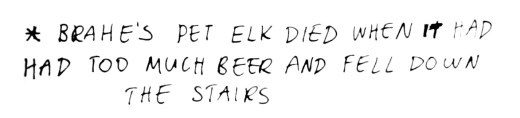 * BRAHE'S PET ELK DIED WHEN IT HAD
HAD TOO MUCH BEER AND FELL DOWN
THE STAIRS